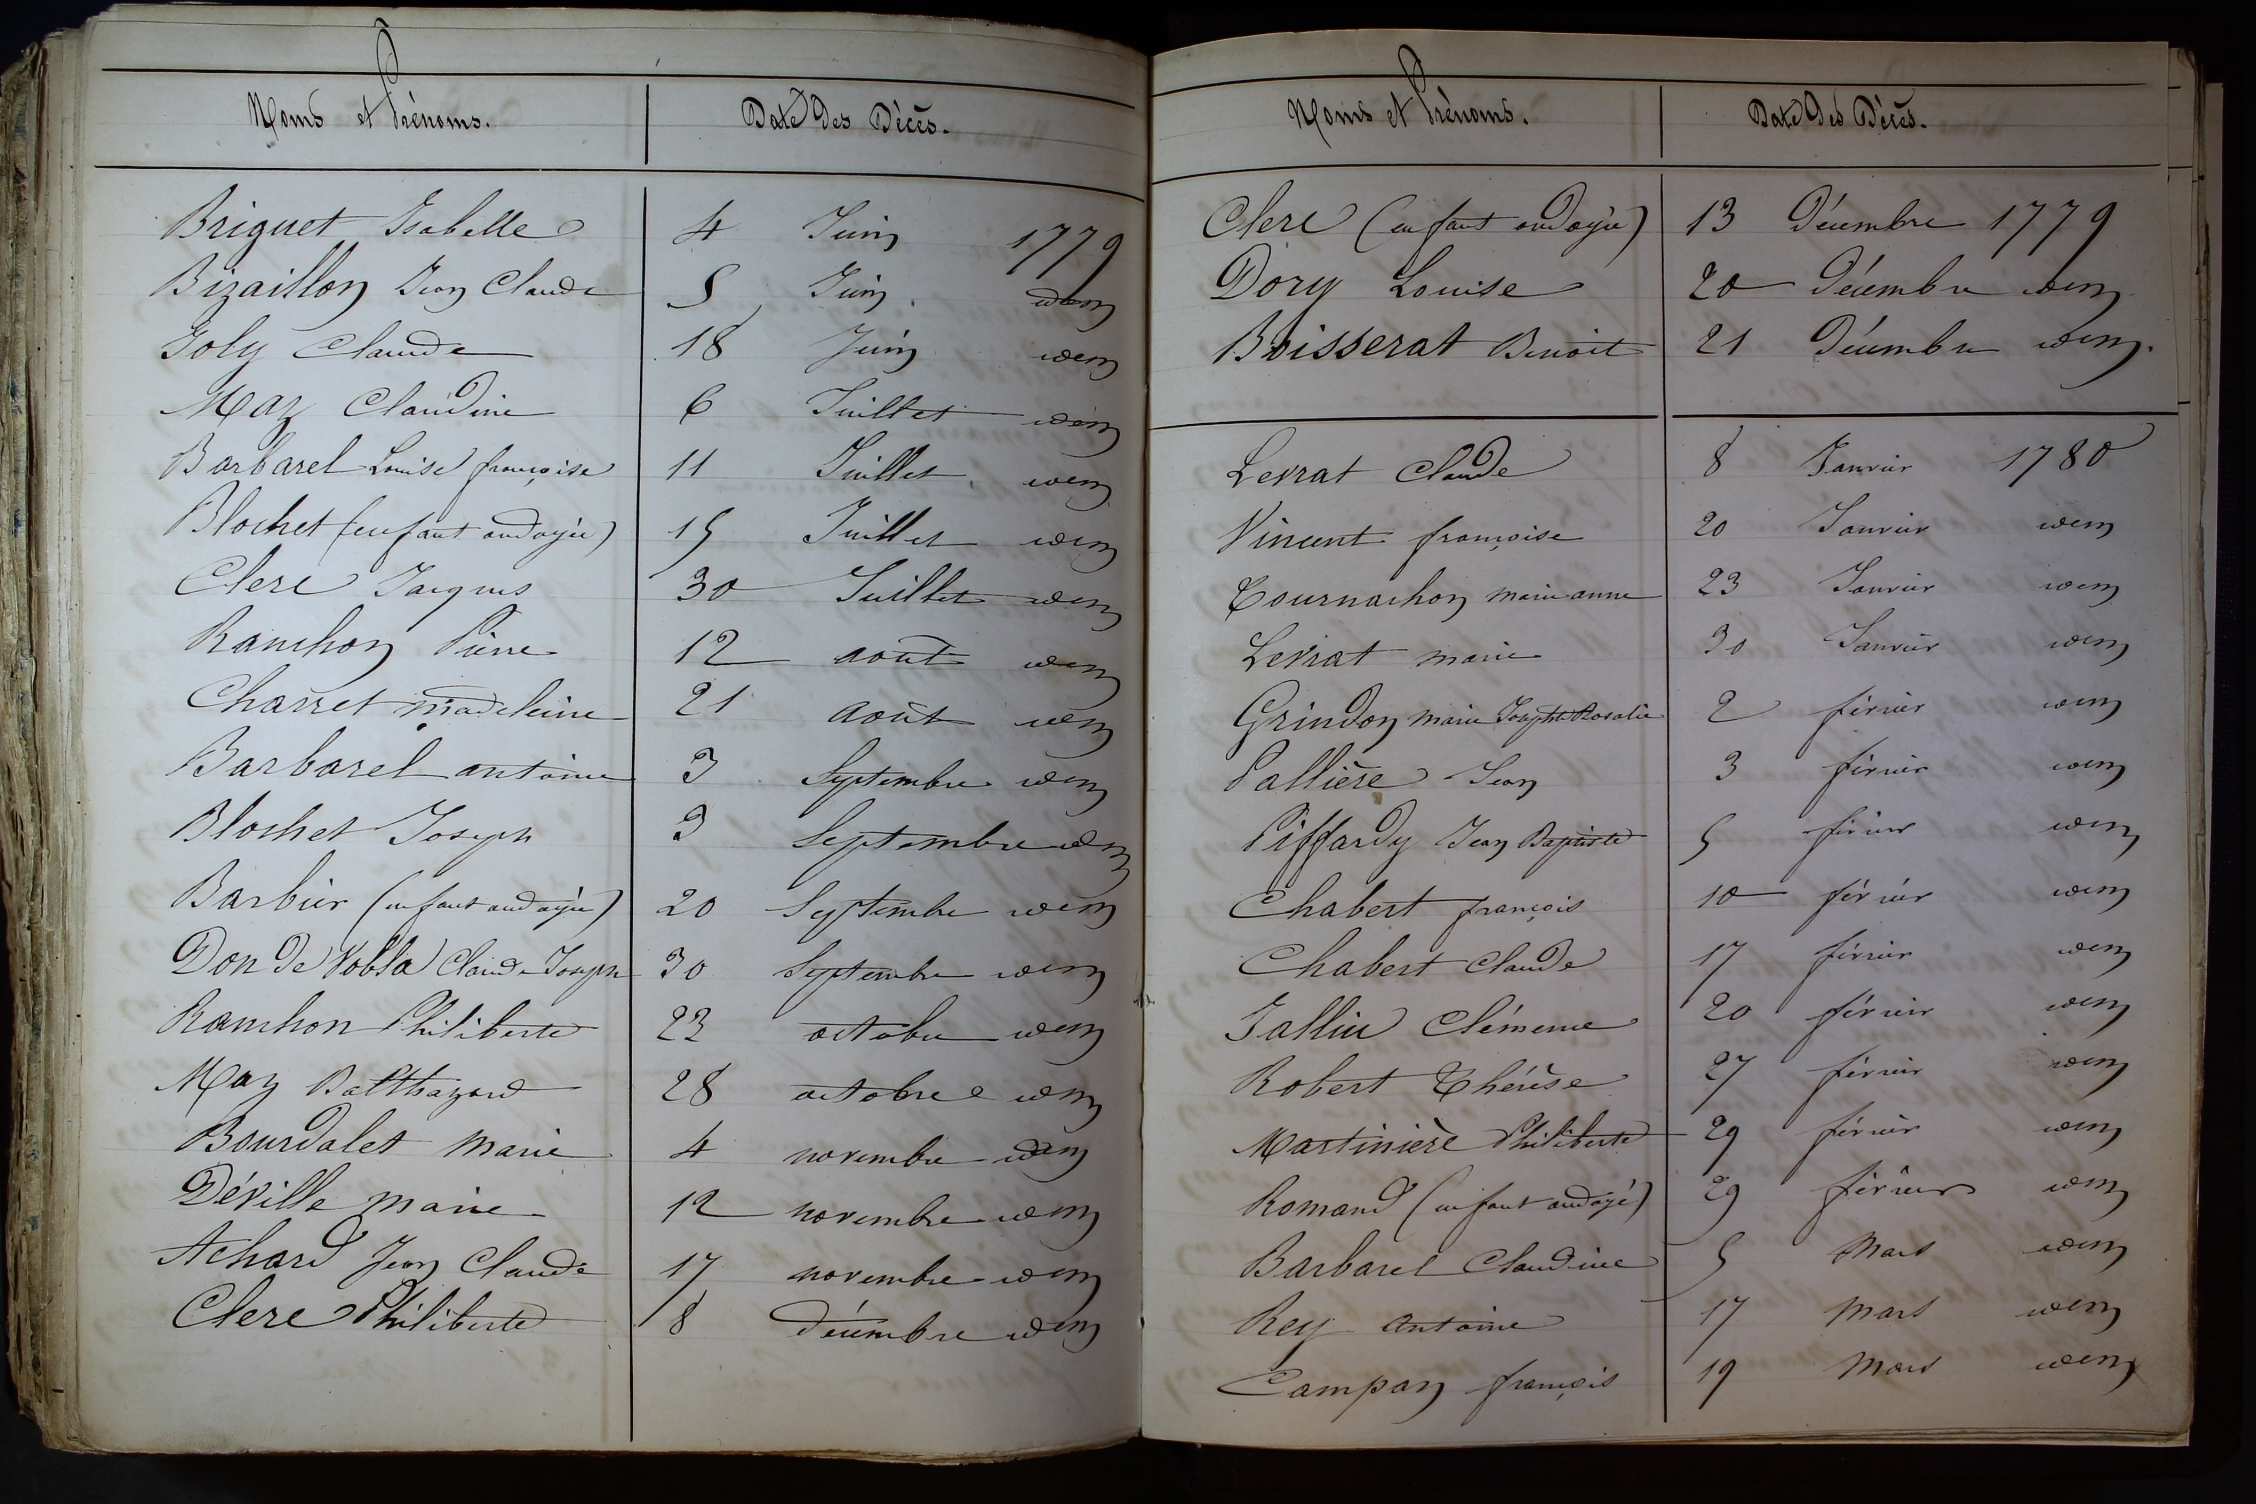 Noms et Prénoms. Date des Décès.
Briguet Isabelle 4 Juin 1779
Bizaillon Jean Claude 5 Juin idem
Joly Claude 18 Juin idem
Maz Claudine 6 Juillet idem
Barbarel Louise françoise 11 Juillet idem
Blochet (enfant ondoyée) 15 Juillet idem
Clerc Jacques 30 Juillet idem
Ranchon Pierre 12 août idem
Charret madeleine 21 août idem
Barbarel antoine 3 Septembre idem
Blochet Joseph 3 Septembre idem
Barbier (enfant ondoyée) 20 Septembre idem
Don de Vobla Claude Joseph 30 Septembre idem
Ranchon Philiberte 22 octobre idem
Maz Balthazard 28 octobre idem
Bourdalet marie 4 novembre idem
Déville marie 12 novembre idem
Achard Jean Claude 17 novembre idem
Clerc Philiberte 8 décembre idem
Noms et Prénoms. Date des Décès.
Clerc (enfant ondoyée) 13 Décembre 1779
Dory Louise 20 Décembre idem
Boisserat Benoit 21 Décembre idem.
Levrat Claude 8 Janvier 1780
Vincent françoise 20 Janvier idem
Tournachon marie anne 23 Janvier idem
Levrat marie 30 Janvier idem
Grindon marie Josephte Rosalie 2 février idem
Pallière Jean 3 février idem
Piffardy Jean Baptiste 5 février idem
Chabert françois 10 février idem
Chabert Claude 17 février idem
Jallin Clémence 20 février idem
Robert Thérèse 27 février idem
Martinière Philiberte 29 février idem
Romand (enfant ondoyé) 29 février idem
Barbarel Claudine 5 Mars idem
Rey antoine 17 Mars idem
Campan françois 19 Mars idem